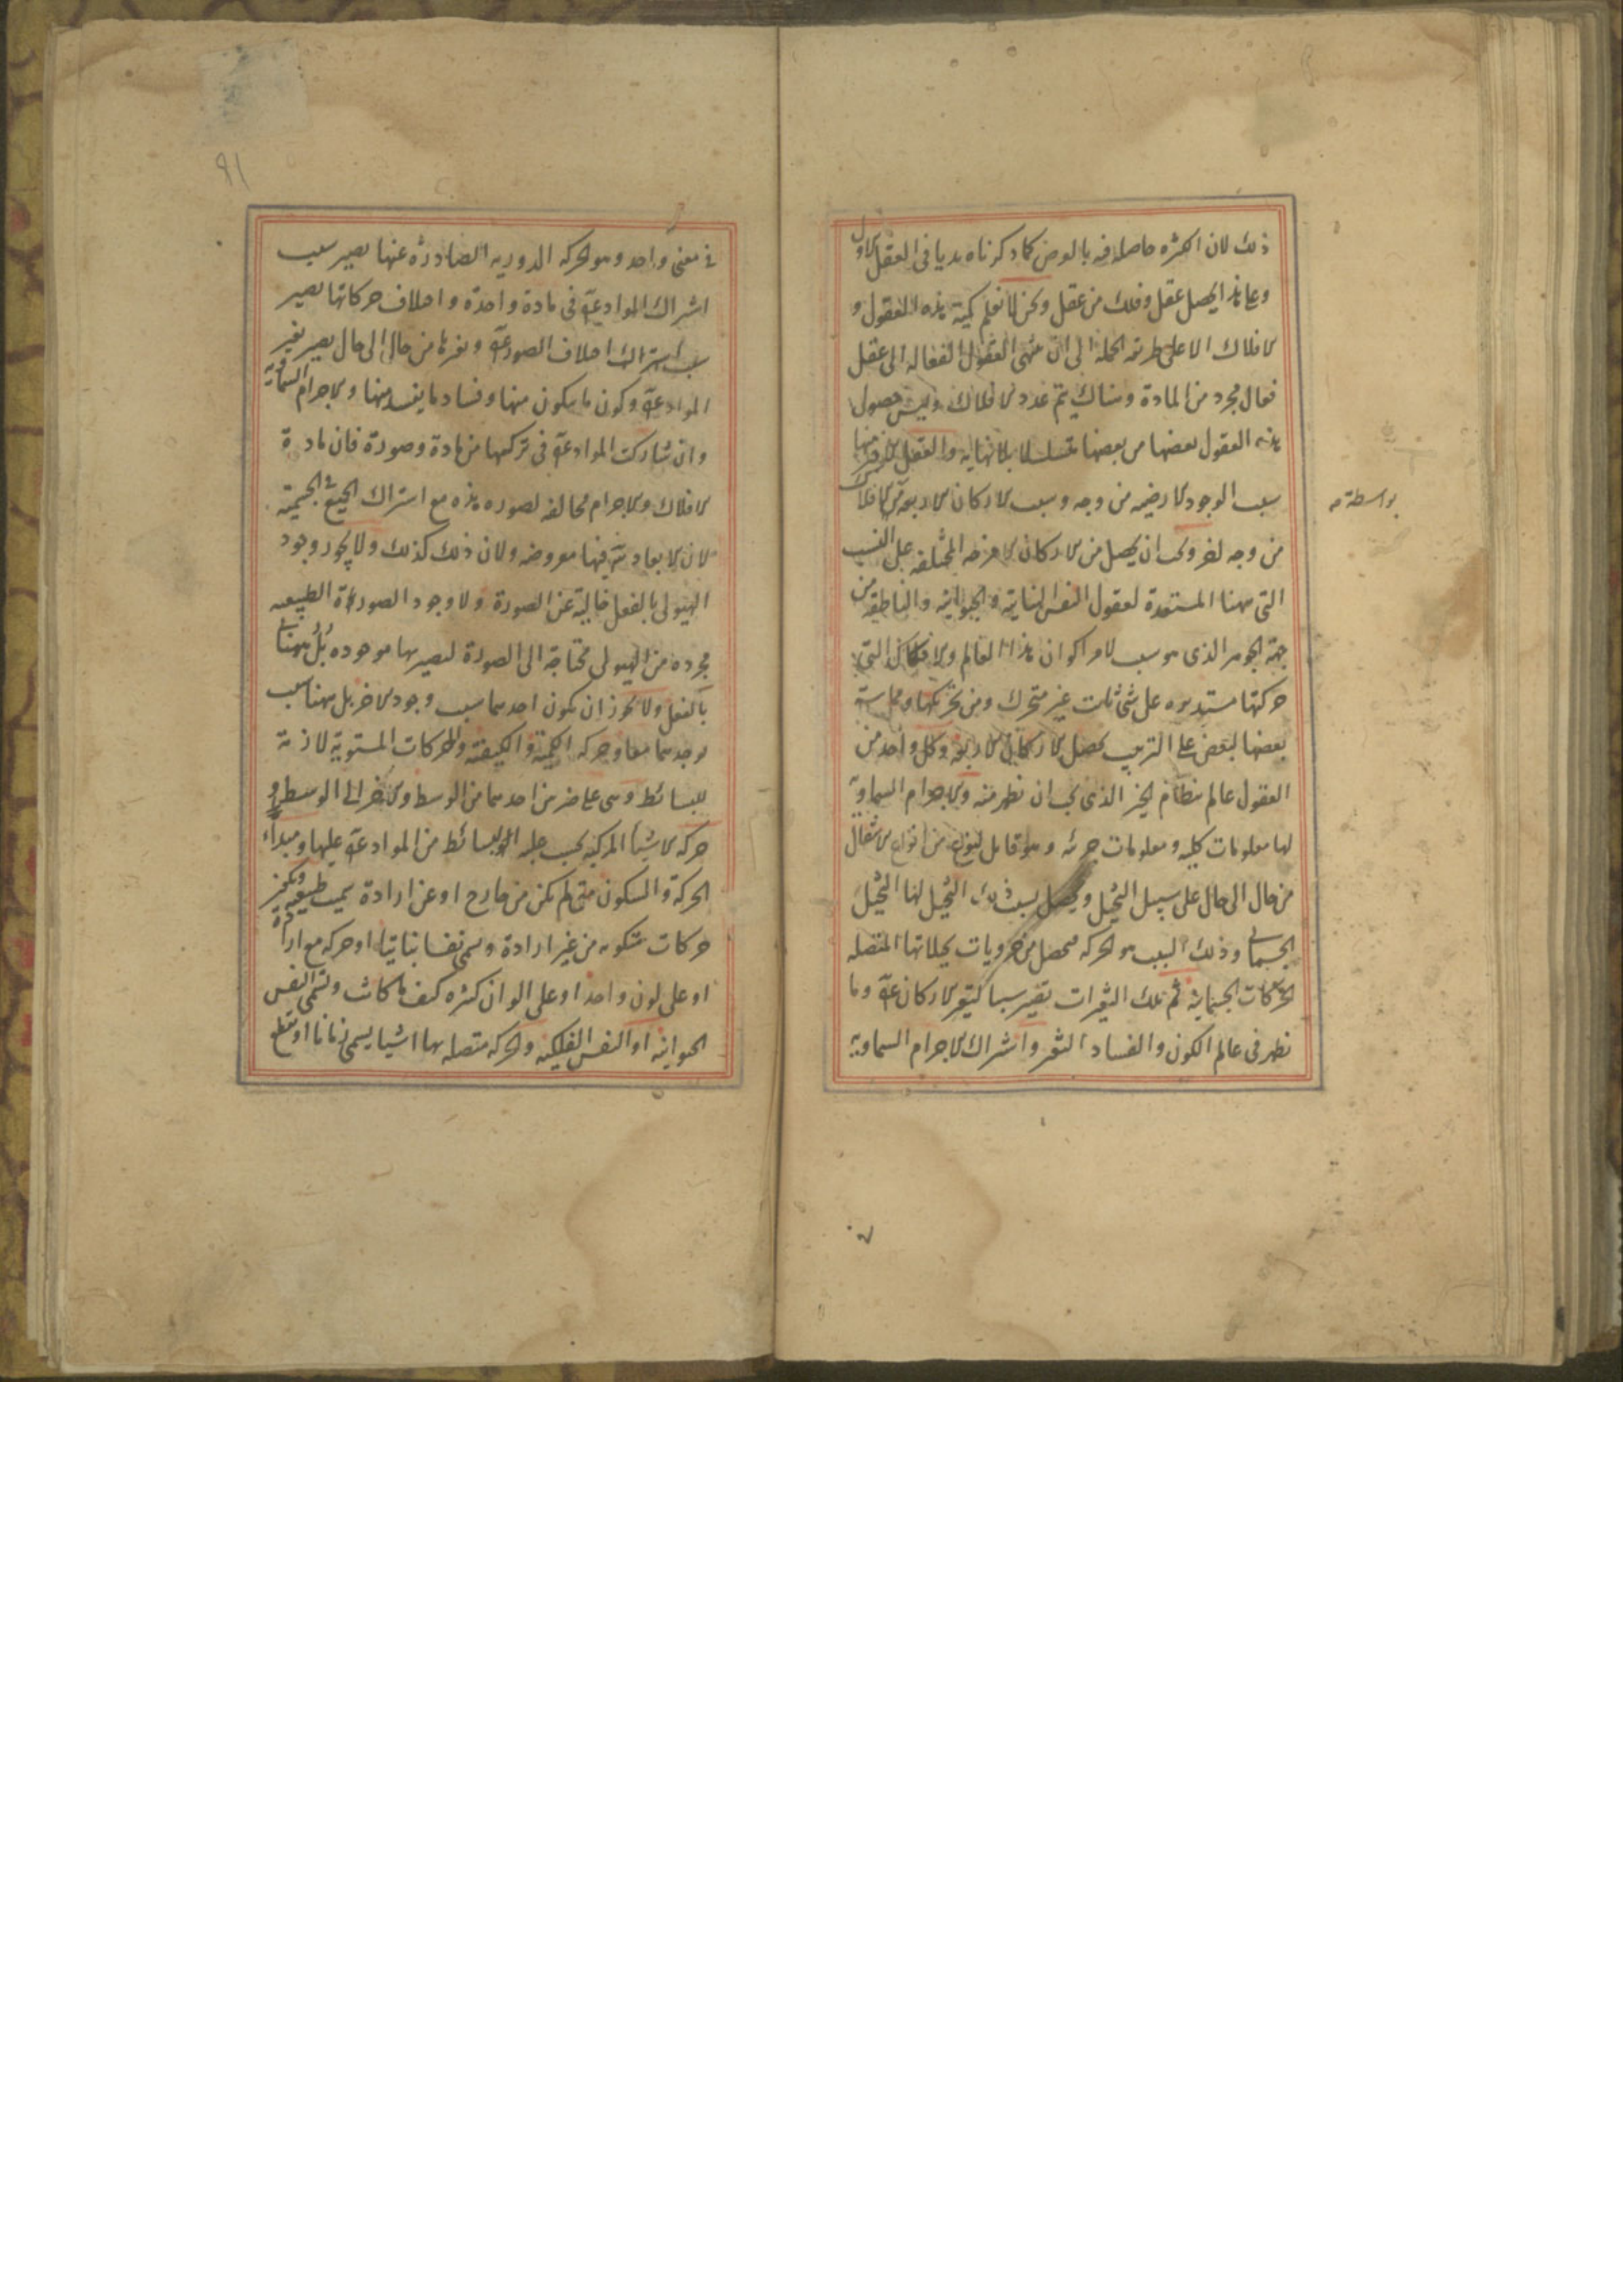 ذلك لان الكثره حاصله فيه بالعرض كما ذكرناه بديا فى العقل الاول
وعلى هذا يحصل عقل وفلك من عقل ونحن لا نعلم كمية هذه العقول و
الافلاك الا على طريق الجمله الى ان ينتهى العقول الفعاله الى عقل
فعال مجرد من المادة وهناك يتم عدد الافلاك وليس حصول
هذه العقول بعضها من بعضها متسلسلا بلا نهايه والعقل الاخير منها
سبب الوجود الارضيه من وجه وسبب الاركان الاربعه من الافلاك
بواسطة
من وجه اخر ويجب ان يحصل من الاركان الامزجه المختلفه على النسب
التى بينها المستعدة لعقول النفس النباتية والحيوانية والناطقه من
جهة الجوهر الذى هو سبب لامر اكوان هذا العالم والافلاك التى
حركتها مستديره على شئ ثابت غير متحرك ومن تحركها ومماسة
بعضها لبعض على الترتيب يحصل الاركان الاربعه وكل واحد من
العقول عالم بنظام الخير الذى يجب ان يظهر منه والاجرام السماوية
لها معلومات كليه ومعلومات جزئيه وهو قابل لنوع من انواع الانتقال
من حال الى حال على سبيل التخيل ويحصل بسبب ذلك التخيل لها التخيل
الجسمانى وذلك السبب هو الحركه فيحصل من جزويات تخيلاتها المتصله
الحركات الجسمانية ثم تلك التغيرات تصير سببا لتغير الاركان عه وما
يظهر فى عالم الكون والفساد التغير واشتراك الاجرام السماوية
٩١
فى معنى واحد وهو الحركه الدوريه الصادرة عنها يصير سبب
اشتراك المواد عه فى مادة واحدة واختلاف حركاتها يصير
سبب اختلاف الصور عه وتغيرها من حال الى حال يصير تغير
المواد عه وكون ما يتكون منها وفساد ما يفسد منها والاجرام السماوية
وان شاركت المواد عه فى تركبها من مادة وصورة فان مادة
الافلاك والاجرام مخالفه لصوره هذه مع اشتراك الجميع فى الجسمية
لان الابعاد فيها مفروضه ولان ذلك كذلك ولا يجوز وجود
الهيولى بالفعل خالية عن الصورة ولا وجود الصورة الطبيعيه
مجرده من الهيولى محتاجة الى الصورة لتصير بها موجوده بل
بالفعل ولا يجوز ان يكون احدهما سبب وجود الاخر بل ههنا سبب
يوجدهما معا وحركه الكمية والكيفية والحركات المستوية لازمة
للبسائط وهى على ضربين احدهما من الوسط والاخر الى الوسط و
حركه الاشيا المركبه بحسب غلبه البسائط من المواد عه عليها ومبداء
الحركة والسكون متى لم يكن من خارج او عن ارادة سميت طبيعيه
حركات متكونه من غير ارادة ويسمى نفسا نباتيا او حركه مع ارادة
او على لون واحد او على الوان كثيره كيف ما كانت وتسمى النفس
الحيوانيه او النفس الفلكيه والحركه متصله بها اشيا يسمى زمانا او قطع